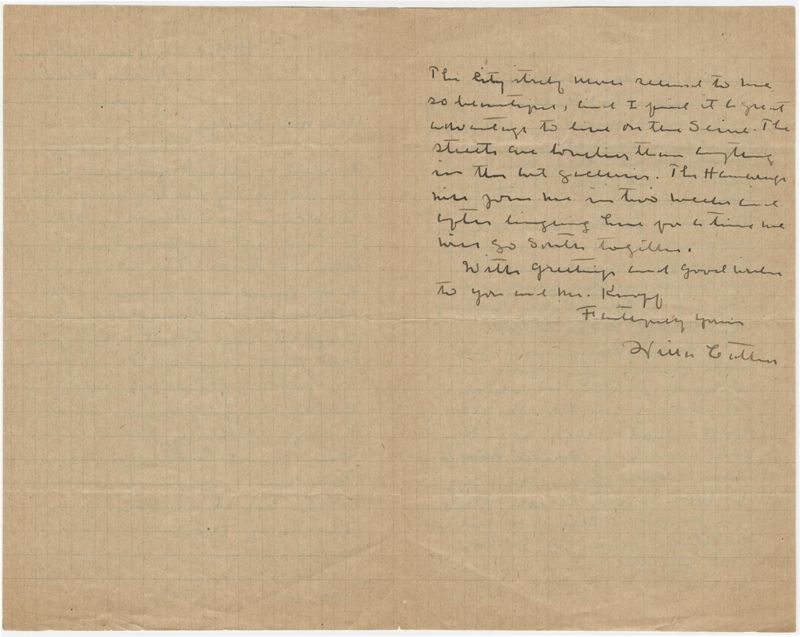 The City itself never seemed to me
so beautiful, and I find it a great
advantage to live on the Seine. The
streets are lovelier than anything
in the art galleries. The Hambourgs
will join me in two weeks and
after lingering here for a time we
will go South together.
With greetings and good wishes
to you and Mr. Knopf
Faithfully yours
Willa Cather